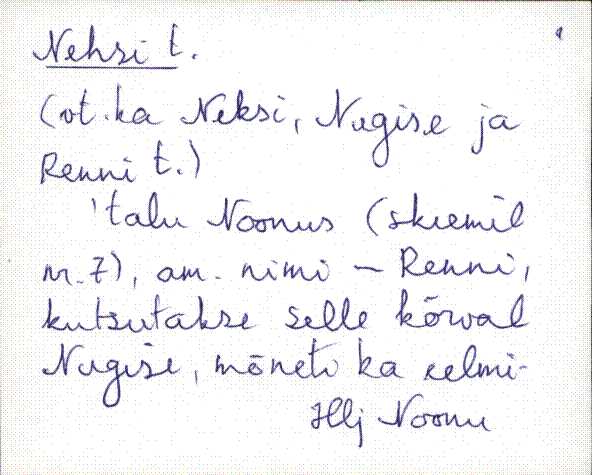 Nehsi t.
(vt. ka Neksi, Nugise ja
Renni t.)
'talu Noonus (skeemil
nr. 7), am. nimi – Renni,
kutsutakse selle kõrval
Nugise, mõneti ka eelmi-
Hlj Noonu